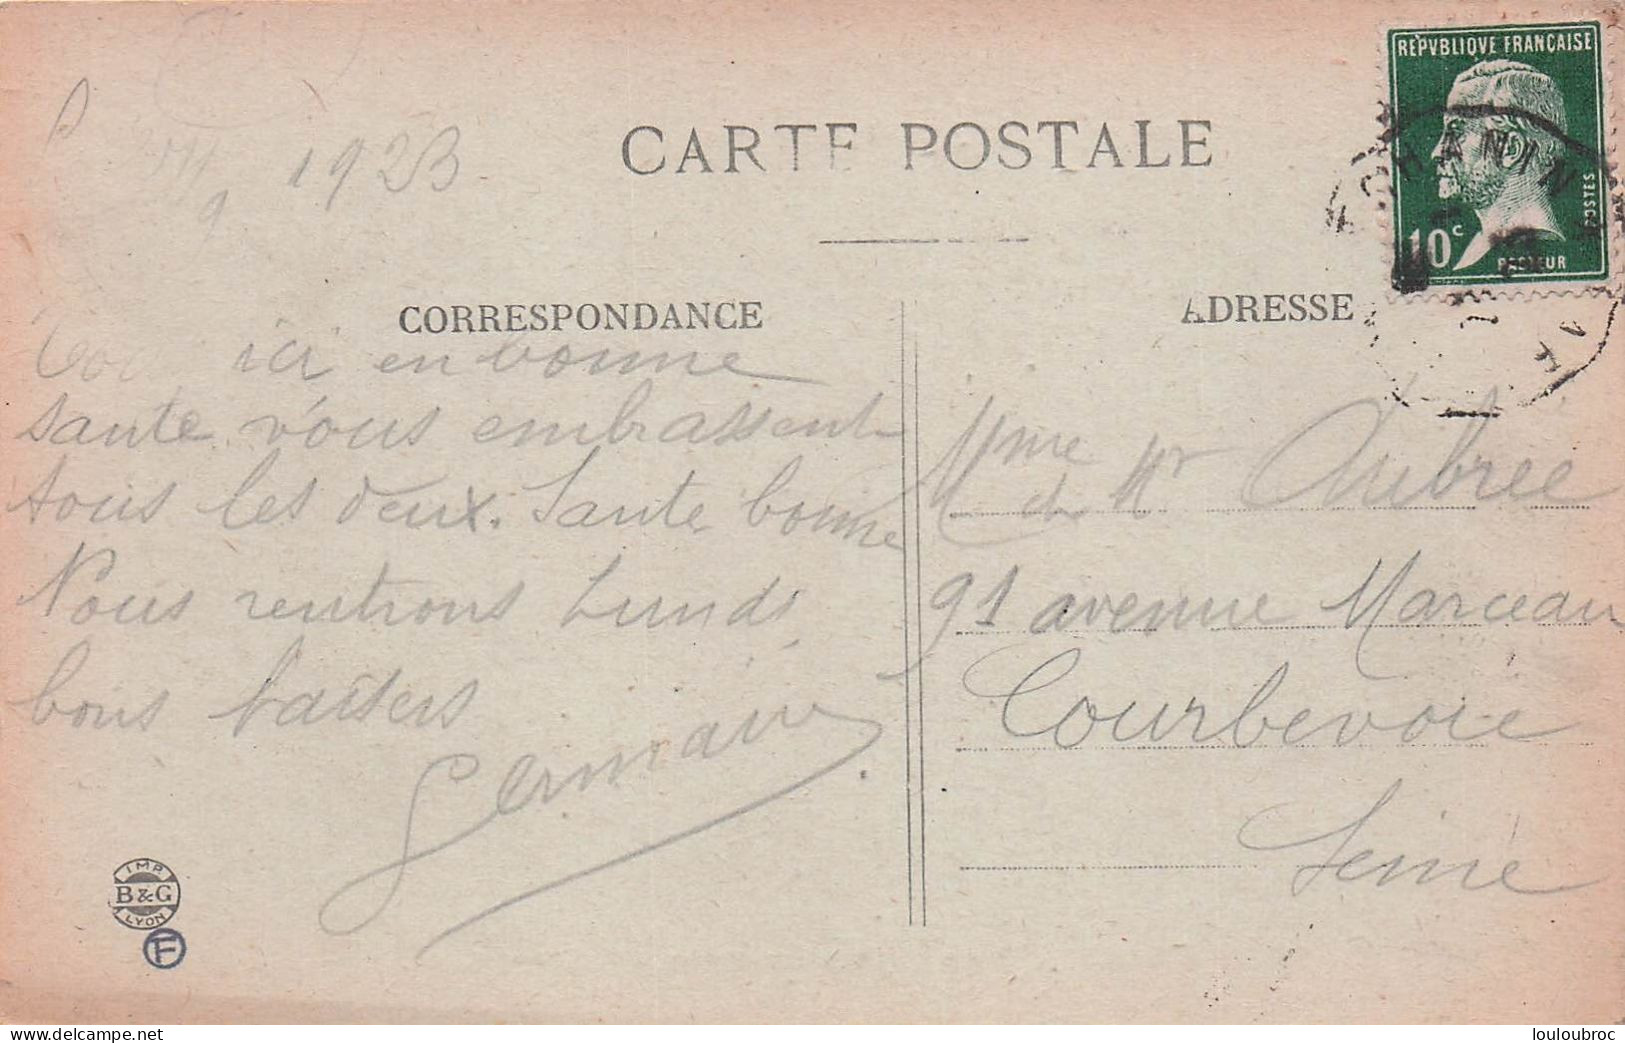 1923
CARTE POSTALE
REPVBLIQVE FRANÇAISE
POSTES
10c
PASTEUR
CORRESPONDANCE
ici en bonne
sante vous embrassent
tous les deux. Sante bonne
Nous rentrons Lundi
bons baisers
Germaine
IMP.
B&G
LYON
F
ADRESSE
Mme et Mr Aubree
91 avenue Marceau
Courbevoie
Seine
www.delcampe.net
louloubroc